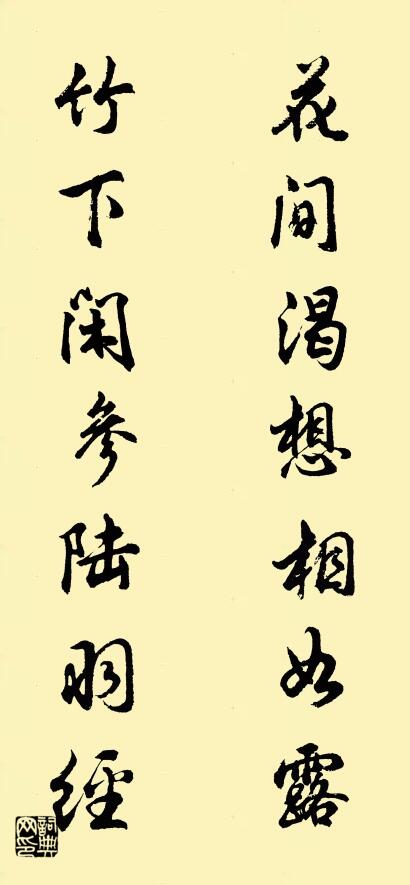 花间渴想相如露
竹下闲参陆羽經
詞典网印